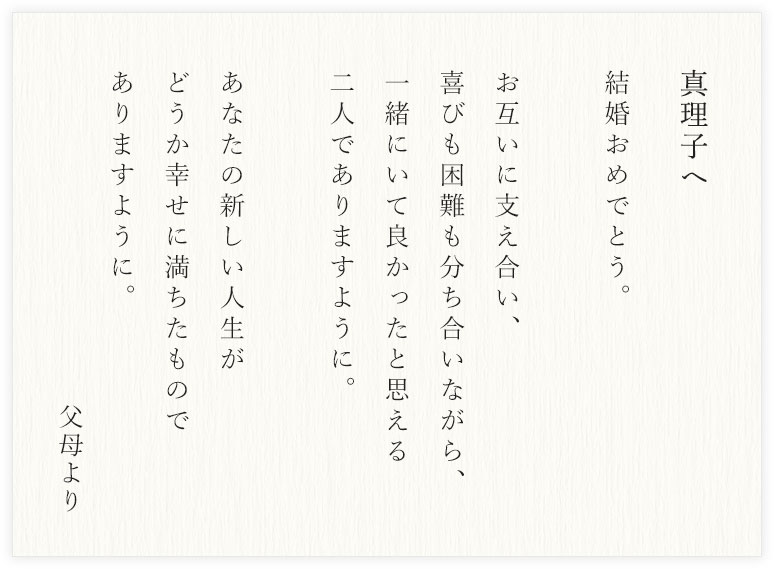 真理子へ
結婚おめでとう。
お互いに支え合い、
喜びも困難も分ち合いながら、
一緒にいて良かったと思える
二人でありますように。
あなたの新しい人生が
どうか幸せに満ちたもので
ありますように。
父母より